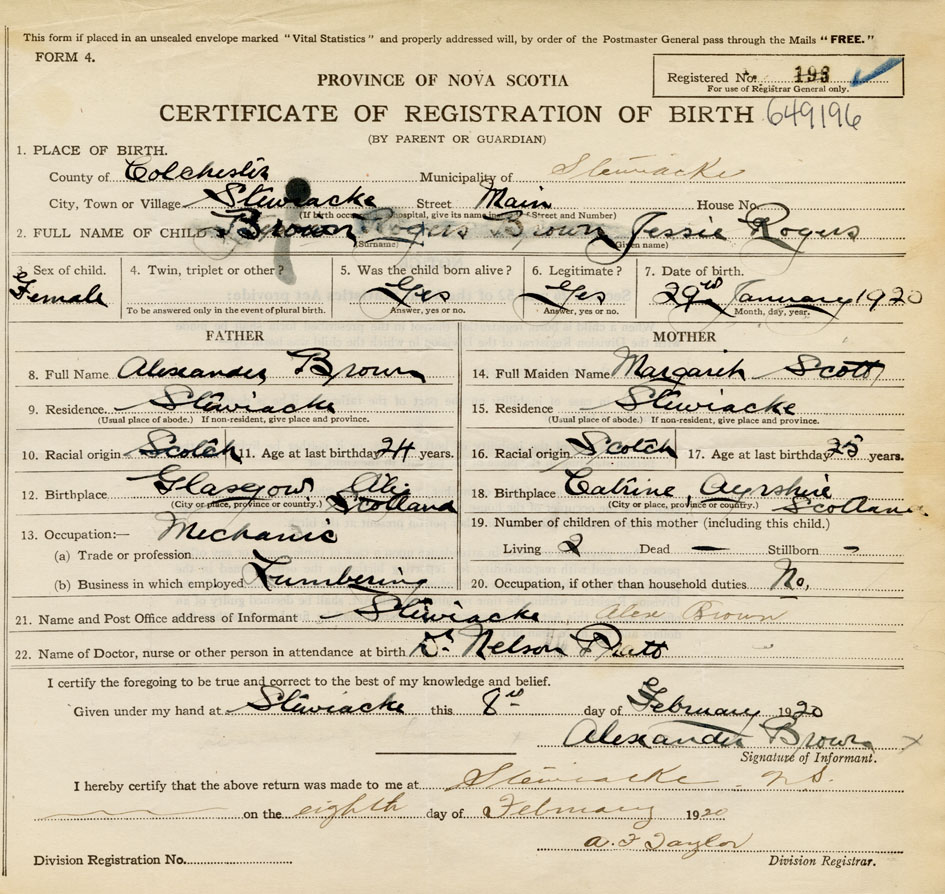 This form if placed in an unsealed envelope marked "Vital Statistics" and properly addressed will, by order of the Postmaster General pass through the Mails "FREE."
FORM 4.
Registered No. 193
For use of Registrar General only.
PROVINCE OF NOVA SCOTIA
CERTIFICATE OF REGISTRATION OF BIRTH 649196
(BY PARENT OR GUARDIAN)
1. PLACE OF BIRTH.
County of Colchester Municipality of Stewiacke
City, Town or Village Stewiacke Street Main House No.
(If birth occ hospital, give its name in of Street and Number)
2. FULL NAME OF CHILD Brown Rogers Brown Jessie Rogers
(Surname) (Given name)
3. Sex of child. 4. Twin, triplet or other? 5. Was the child born alive? 6. Legitimate? 7. Date of birth.
Female Yes Yes 29 January 1920
To be answered only in the event of plural birth. Answer, yes or no. Answer, yes or no. Month, day, year.
FATHER MOTHER
8. Full Name Alexander Brown 14. Full Maiden Name Margaret Scott
9. Residence Stewiacke 15. Residence Stewiacke
(Usual place of abode.) If non-resident, give place and province. (Usual place of abode.) If non-resident, give place and province.
10. Racial origin Scotch 11. Age at last birthday 24 years. 16. Racial origin Scotch 17. Age at last birthday 25 years.
12. Birthplace Glasgow, Scotland 18. Birthplace Catrine, Ayrshire Scotland
(City or place, province or country.) (City or place, province or country.)
13. Occupation:— Mechanic 19. Number of children of this mother (including this child.)
(a) Trade or profession Living 2 Dead — Stillborn -
(b) Business in which employed Lumbering 20. Occupation, if other than household duties No.
21. Name and Post Office address of Informant Stewiacke Alex Brown
22. Name of Doctor, nurse or other person in attendance at birth Dr Nelson Pratt
I certify the foregoing to be true and correct to the best of my knowledge and belief.
Given under my hand at Stewiacke this 8 day of February 1920
Alexander Brown x
Signature of Informant.
I hereby certify that the above return was made to me at Stewiacke N.S.
on the eighth day of February 1920
A. F Taylor
Division Registration No. Division Registrar.